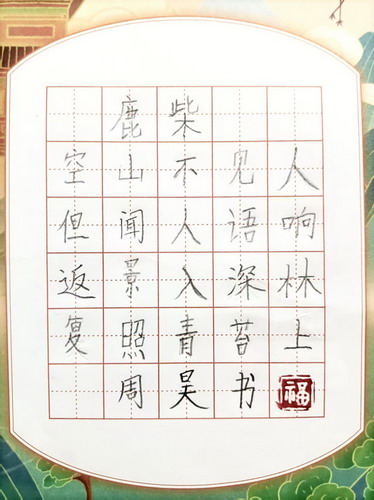 鹿柴
空山不见人
但闻人语响
返景入深林
复照青苔上
周昊书
福